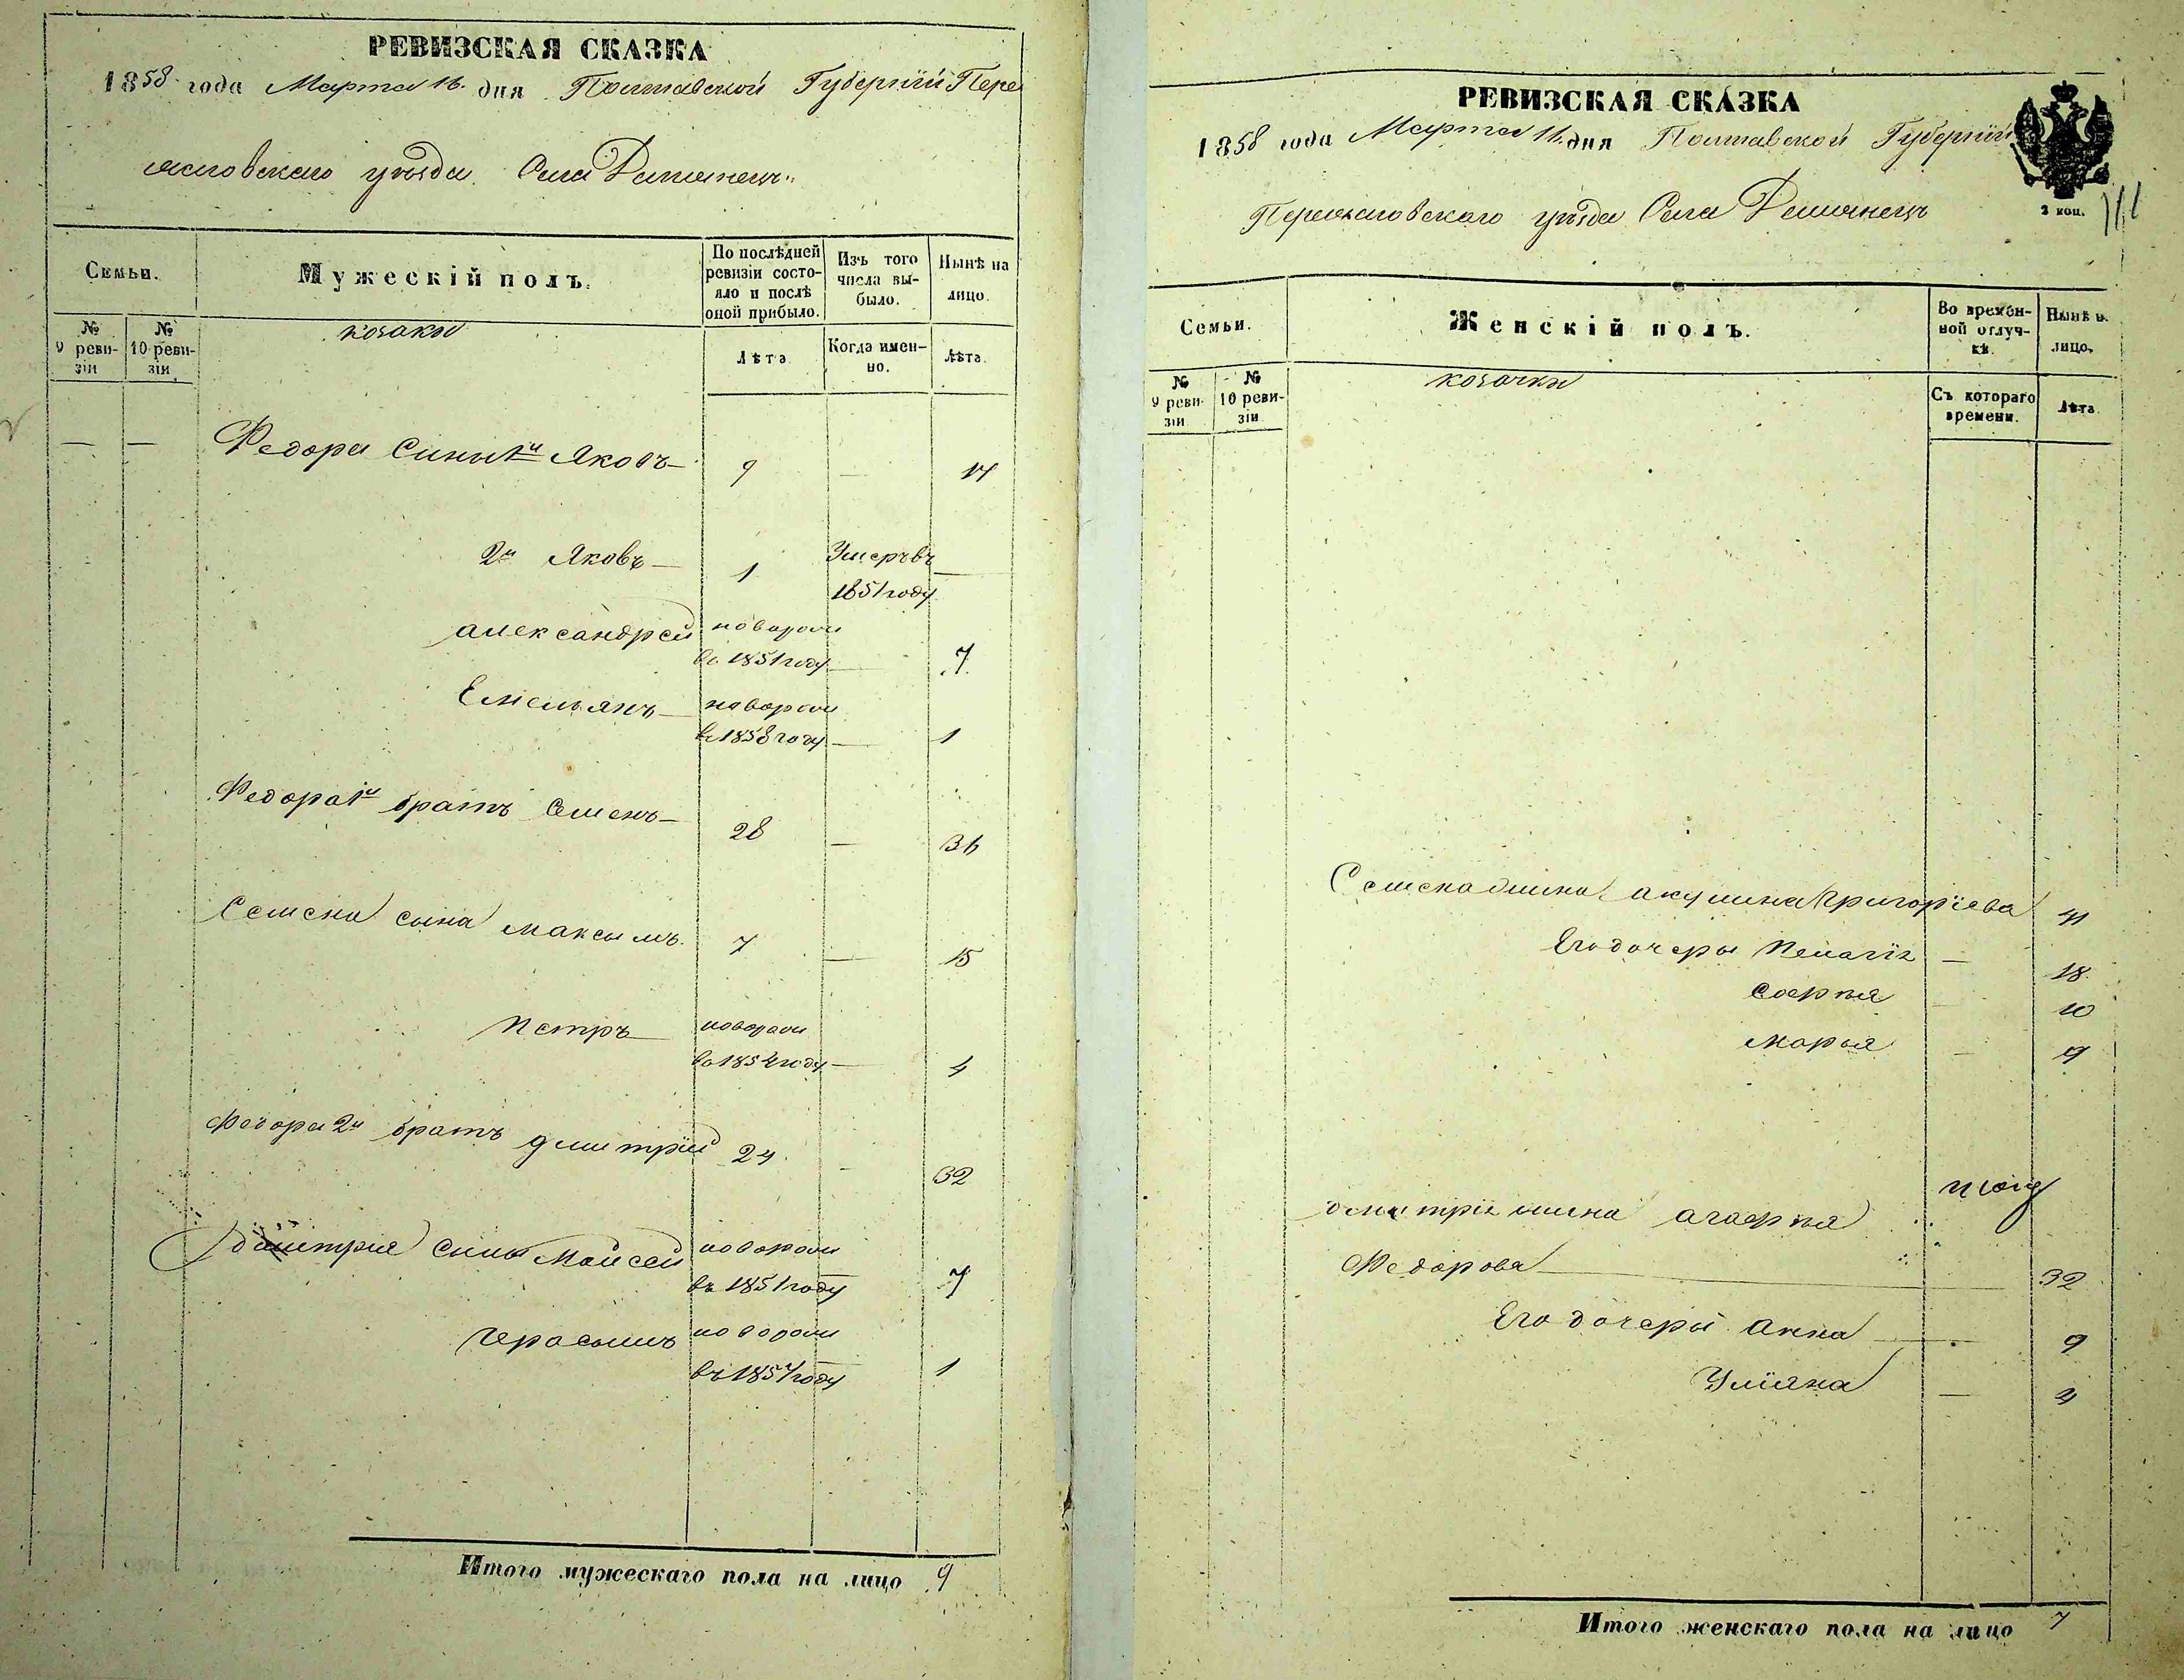 РЕВИЗСКАЯ СКАЗКА
1858 года Марта 16. дня Полтавской Губернїи Пере
яс­ловскаго уѣзда Села Демянецъ
Семьи.
Мужескій полъ.
По послѣдней ревизіи состояло и послѣ оной прибыло.
Изъ того числа выбыло.
Нынѣ на лицо.
№ 9 ревизіи
№ 10 ревизіи
козаки
Лѣта
Когда именно.
Лѣта.
— — Федора Сины 1й Яковъ 9 — 17
2й Яковъ — 1 Умеръ въ —
1851 году
александрей новорож
во 1851 году — 7
Емельянъ — новорож
во 1858 году — 1
Федора 1й братъ Семенъ — 28 — 36
Семена сына Максымъ. 7 — 15
Петръ новорож
во 1854 году — 4
Федора 2й братъ дмитрїй 24 - 32
дмитрия сины Мойсей новорож
въ 1851 году 7
Герасымъ новорож
въ 1857 году 1
Итого мужескаго пола на лицо 9
РЕВИЗСКАЯ СКАЗКА
1858 года Марта 16. дня Полтавской Губернїи
Переясловскаго уѣзда Села Демянецъ
2 коп.
Семьи.
Женскій полъ.
Во временной отлучкѣ.
Нынѣ н. лицо.
№ 9 ревизіи
№ 10 ревизіи
козачки
Съ котораго времени.
Лѣта.
Семена жина акулина Григорїева 41
Его дочеры Пелагїя — 18.
Софья 10
Марья — 9
дмитрїя жина агафья
Федорова 32
Его дочеры анна — 9
Улїяна — 4
Итого женскаго пола на лицо 7